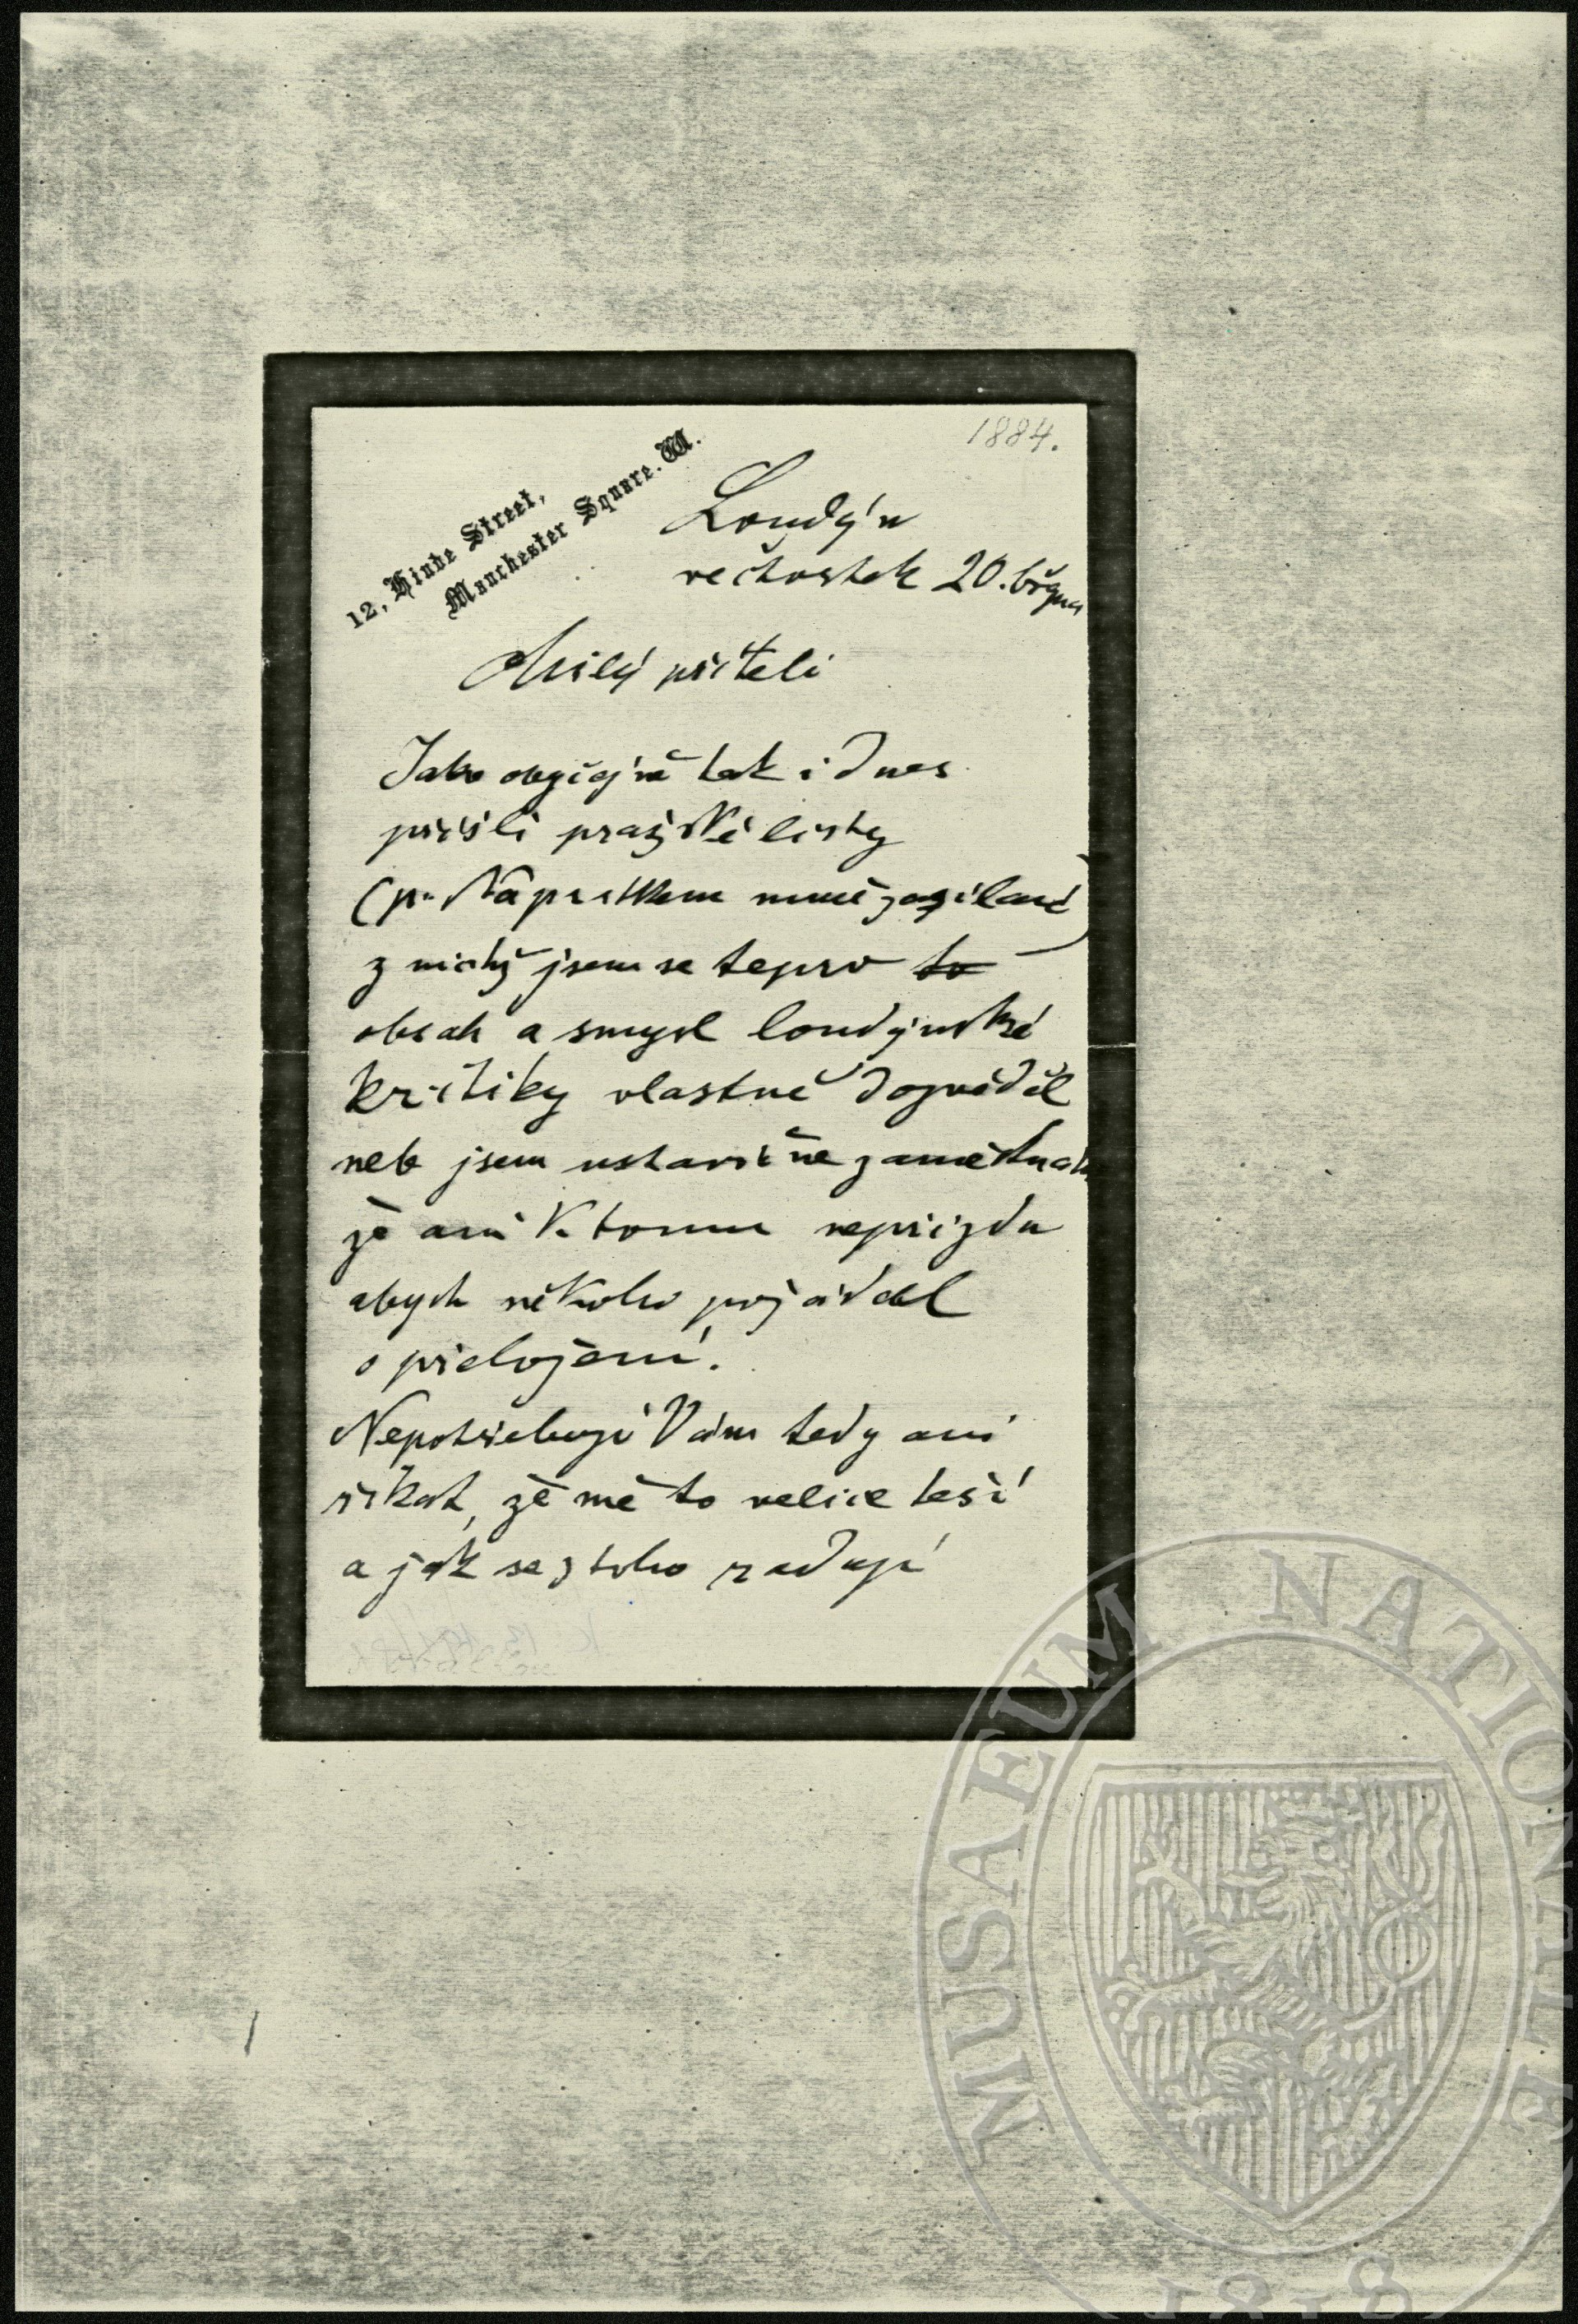 1884.
12, Hinde Street,
Manchester Square. W.
Londýn
ve čtvrtek 20. března
Milý příteli
Jako obyčejně tak i dnes
přišli pražské listy
(p. Náprstkem mně zasílané)
z nichž jsem se teprv to
obsah a smysl londýnské
kritiky vlastně dozvěděl
neb jsem ustavičně zaměstnán
že ani k tomu nepřijdu
abych někoho požádal
o přeložení.
Nepotřebuji Vám tedy ani
říkat, že mě to velice těší
a jak se z toho raduji
MUSAEUM NATIONALE
1818